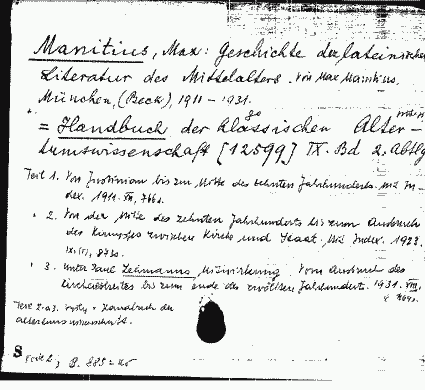 Manitius, Max: Geschichte der lateinischen
Literatur des Mittelalters. von Max Manitius.
München, (Beck), 1911 – 1931.
= Handbuch der klassischen Alter-
tumswissenschaft [12599] IX. Bd 2. Abtlg
Teil 1. Von Justinian bis zur Mitte des zehnten Jahrhunderts. mit In-
dex. 1911. XIII, 766 s.
" 2. Von der Mitte des zehnten Jahrhunderts bis zum Ausbruch
des Kampfes zwischen Kirche und Staat. Mit Index. 1923.
873 s.
" 3. Unter Paul Lehmanns Mitwirkung. Vom Ausbruch des
Kirchenstreites bis zum Ende des zwölften Jahrhunderts. 1931. XIII,
Teil 2. u 3. Handbuch der
Altertumswissenschaft.
8